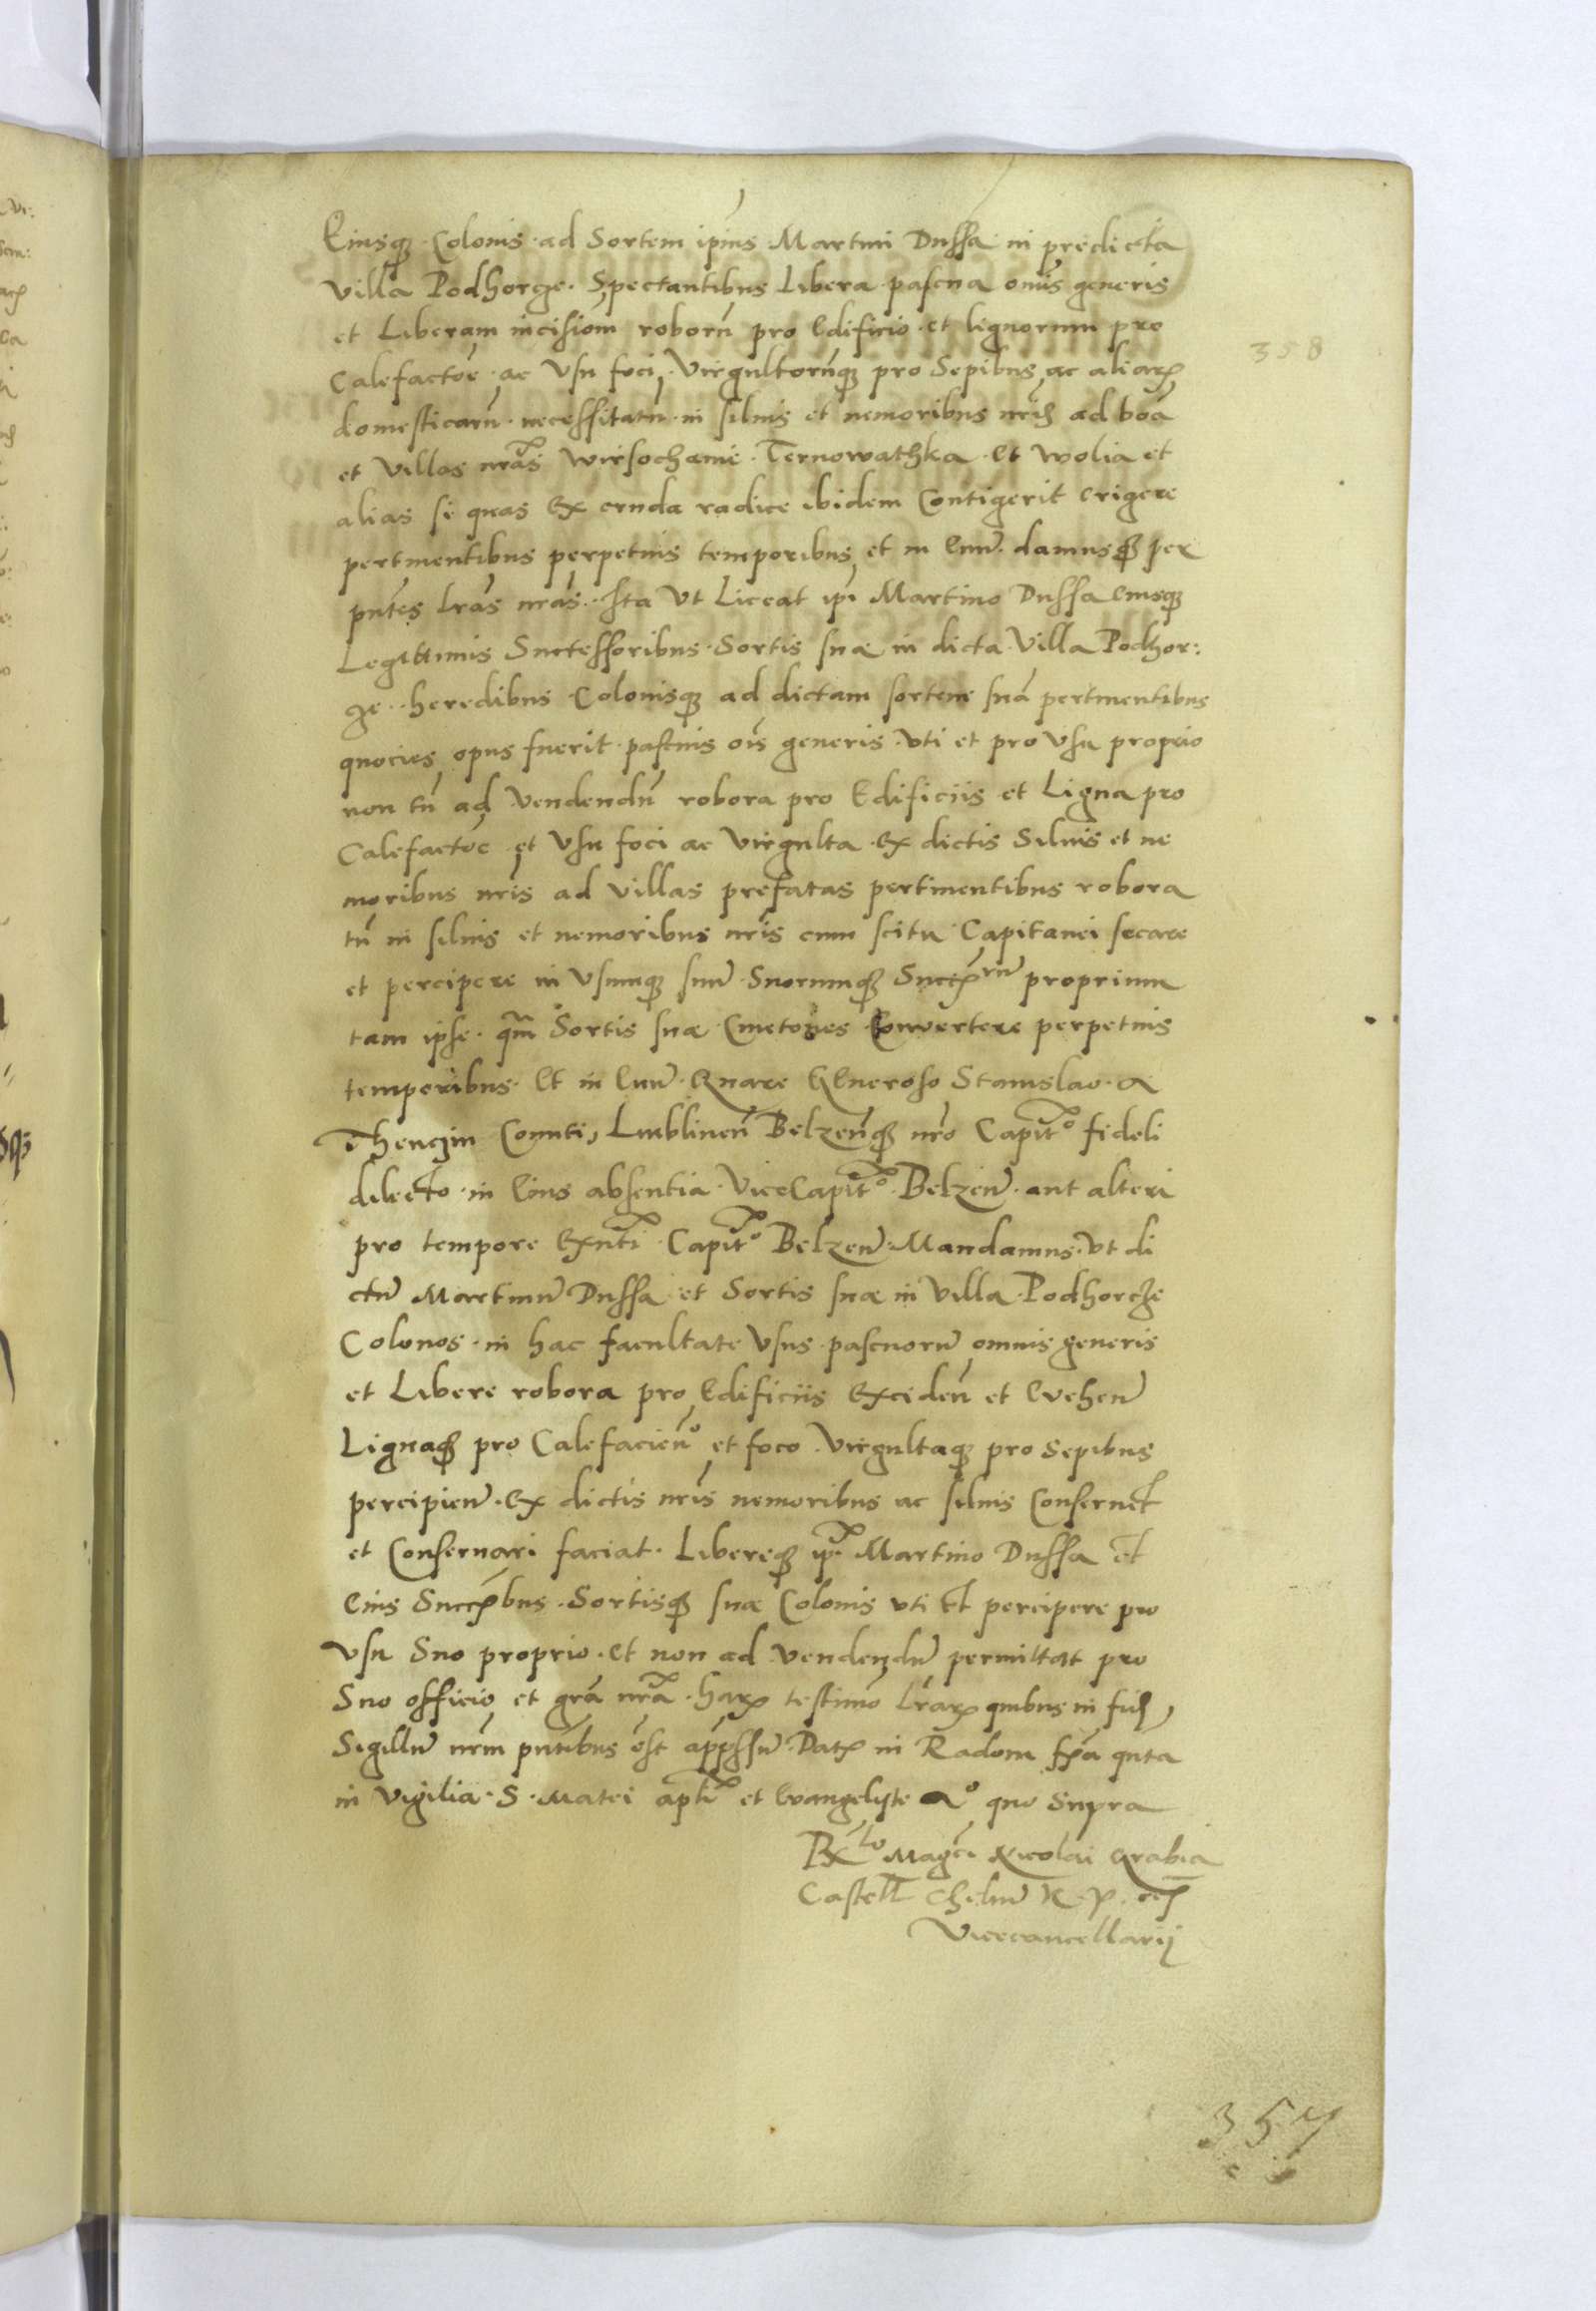 Eiusq; Colonis ad Sortem ip̄ius Martini Dussa in predicta
villa Podhorze. Spectantibus Libera pascua om̄is generis
et Liberam incisiom̄ roborū pro Edificio et lignorum pro
358
Calefactōe ac Vsu foci, Virgultorūq; pro Sepibus, ac aliarꝝ
domesticarū necessitatū in siluis et nemoribus nr̄is ad boā
et villas nr̄as Wirsochanie Ternowathka et Wolia et
alias si quas Ex cruda radice ibidem Contigerit erigere
pertinentibus perpetuis temporibus et in Euū damusq; per
pn̄tes lrās nrās. Ita Vt Liceat ip̄i Martino Dussa Eiusq;
Legittimis Successoribus Sortis suæ in dicta Villa Podhor:
ze heredibus Colonisq; ad dictam sortem suā pertinentibus
quocies opus fuerit pascuis ōis generis vti et pro Vsu proprio
non tn̄ ad Vendendū robora pro Edificiis et Ligna pro
Calefactōe et Vsu foci ac Virgulta Ex dictis Siluis et ne
moribus nr̄is ad villas prefatas pertinentibus robora
tn̄ in siluis et nemoribus nr̄is cum scitu Capitanei secare
et percipere in Vsumq; suū Suorumq; Succꝝrū proprium
tam ipse qm̄ Sortis suæ Cmetones Convertere perpetuis
temporibus Et in Euū. Quare Generoso Stanislao a
Thenczin Comiti, Lublineñ Belzeñq; nr̄o Capit̄o fideli
dilecto in Eius absentia ViceCapit̄o Belzeñ aut alteri
pro tempore Exn̄ti Capit̄o Belzeñ Mandamus Vt di
ctū Martinū Dussa et Sortis suæ in Villa Podhorcze
Colonos in hac facultate Vsus pascuorū omnis generis
et Libere robora pro Edificiis Excideñ et Eveheñ
Lignaq; pro Calefacieñº et foco Virgultaq; pro sepibus
percipieñ Ex dictis nr̄is nemoribus ac siluis Conseruet
et Conseruari faciat. Libereq; ip̄i Martino Dussa et
Eius Succꝝbus Sortisq; suæ Colonis vti et percipere pro
vsu Suo proprio et non ad vendendū permittat pro
Suo officio et grā nrā. Harꝝ testimō Lrarꝝ quibus in fidē
Sigillū nr̄m pn̄tibus est app̄ssū. Datꝫ in Radom fr̄ia qnta
in Vigilia S. Matei apłi et Evangelyste Aº quo Supra
Rˡᵒ Mag̅ci Nicolai Grabia
Castell Chelmeñ R. P. etc
Vicecancellarij
357